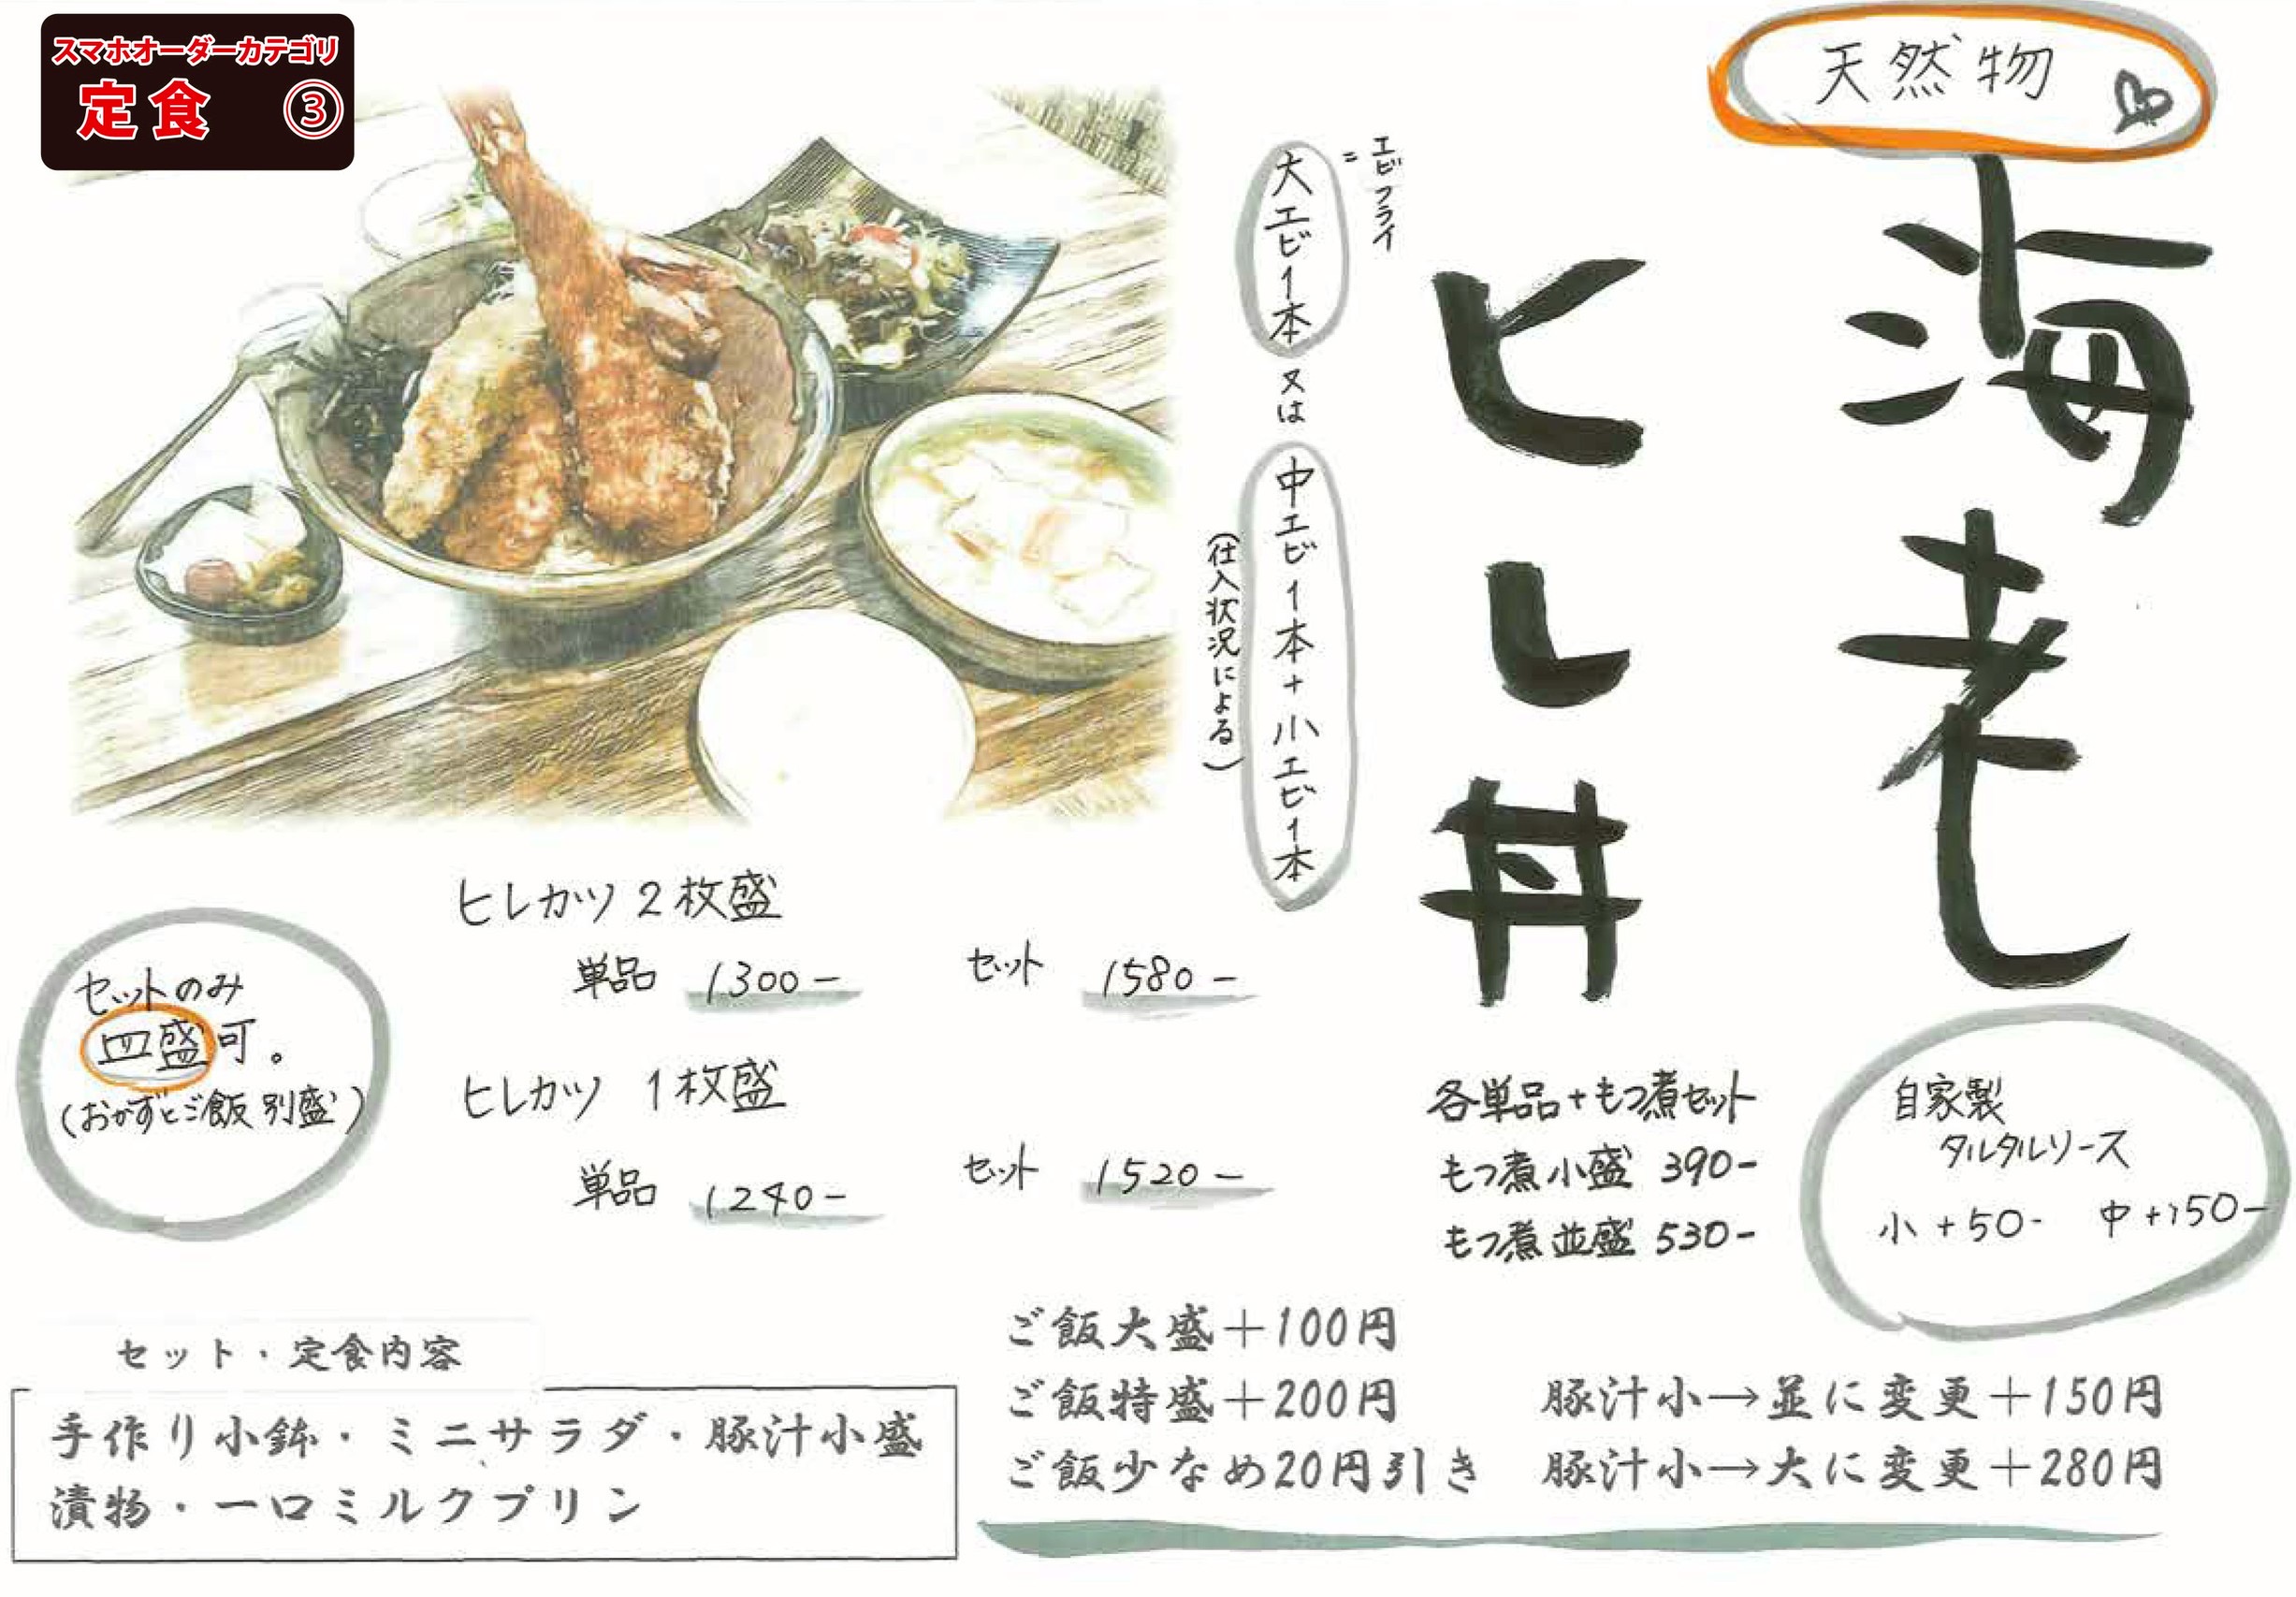 スマホオーダーカテゴリ
定食 ③
天然物
海老
ヒレ丼
=エビフライ
大エビ1本 又は 中エビ1本+小エビ1本
(仕入状況による)
ヒレカツ 2枚盛
単品 1300- セット 1580-
ヒレカツ 1枚盛
単品 1240- セット 1520-
セットのみ
皿盛可。
(おかずとご飯別盛)
各単品+もつ煮セット
もつ煮小盛 390-
もつ煮並盛 530-
自家製
タルタルソース
小+50- 中+150-
セット・定食内容
手作り小鉢・ミニサラダ・豚汁小盛
漬物・一口ミルクプリン
ご飯大盛+100円
ご飯特盛+200円
ご飯少なめ20円引き
豚汁小→並に変更+150円
豚汁小→大に変更+280円